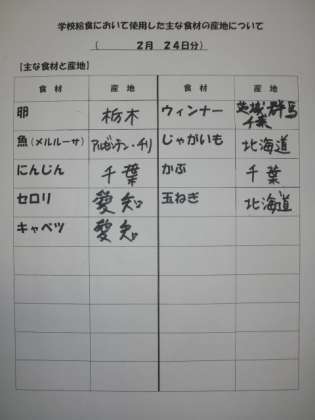 学校給食において使用した主な食材の産地について
(　2月　24日分)
【主な食材と産地】
食材　産地　食材　産地
卵　栃木　ウィンナー　茨城、群馬 千葉
魚(メルルーサ)　アルゼンチン・チリ　じゃがいも　北海道
にんじん　千葉　かぶ　千葉
セロリ　愛知　玉ねぎ　北海道
キャベツ　愛知